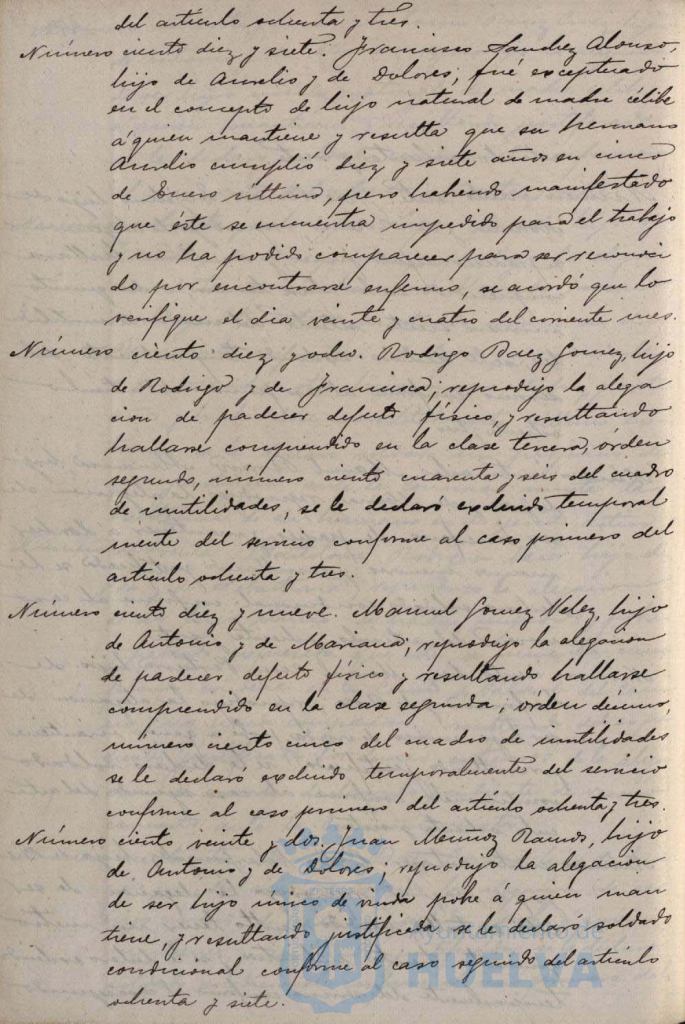 del artículo ochenta y tres.
Número ciento diez y siete. Francisco Sanchez Alonso,
hijo de Aurelio y de Dolores; fué exceptuado
en el concepto de hijo natural de madre célibe
á quien mantiene y resulta que su hermano
Aurelio cumplió diez y siete años en cinco
de Enero último, pero habiendo manifestado
que éste se encuentra impedido para el trabajo
y no ha podido comparecer para ser reconoci
do por encontrarse enfermo, se acordó que lo
verifique el dia veinte y cuatro del corriente mes.
Número ciento diez y ocho. Rodrigo Baez Gomez, hijo
de Rodrigo y de Francisca; reprodujo la alega
cion de padecer defecto físico, y resultando
hallarse comprendido en la clase tercera, órden
segundo, número ciento cuarenta y seis del cuadro
de inutilidades, se le declaró excluido temporal
mente del servicio conforme al caso primero del
artículo ochenta y tres.
Número ciento diez y nueve. Manuel Gomez Velez, hijo
de Antonio y de Mariana; reprodujo la alegacion
de padecer defecto físico y resultando hallarse
comprendido en la clase segunda, órden décimo,
número ciento cinco del cuadro de inutilidades
se le declaró excluido temporalmente del servicio
conforme al caso primero del artículo ochenta y tres.
Número ciento veinte y dos. Juan Muñoz Ramos, hijo
de Antonio y de Dolores; reprodujo la alegacion
de ser hijo único de viuda pobre á quien man
tiene, y resultando justificada se le declaró soldado
condicional conforme al caso segundo del artículo
ochenta y siete.
Ayuntamiento de
HUELVA